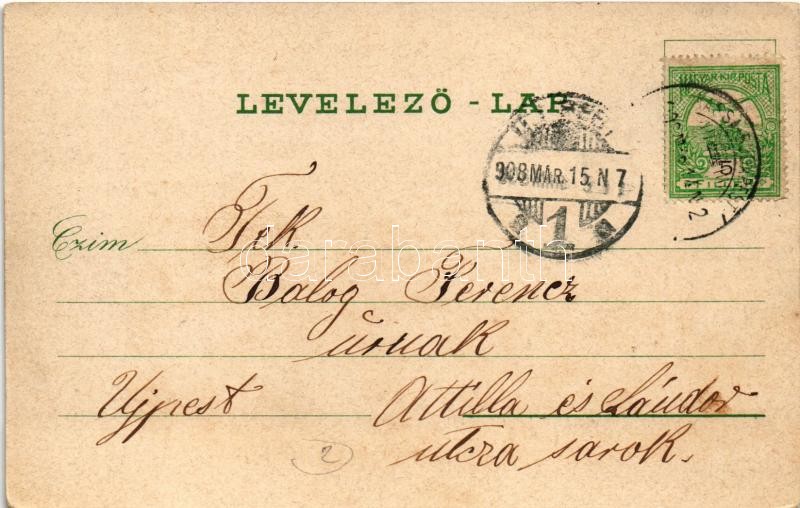 LEVELEZŐ - LAP
MAGYAR KIR. POSTA
908 MÁR. 15. N 7
1
5
Czim
Tek.
Balog Ferencz
úrnak
Ujpest
Attilla és Sándor
utcza sarok.
2
darabanth